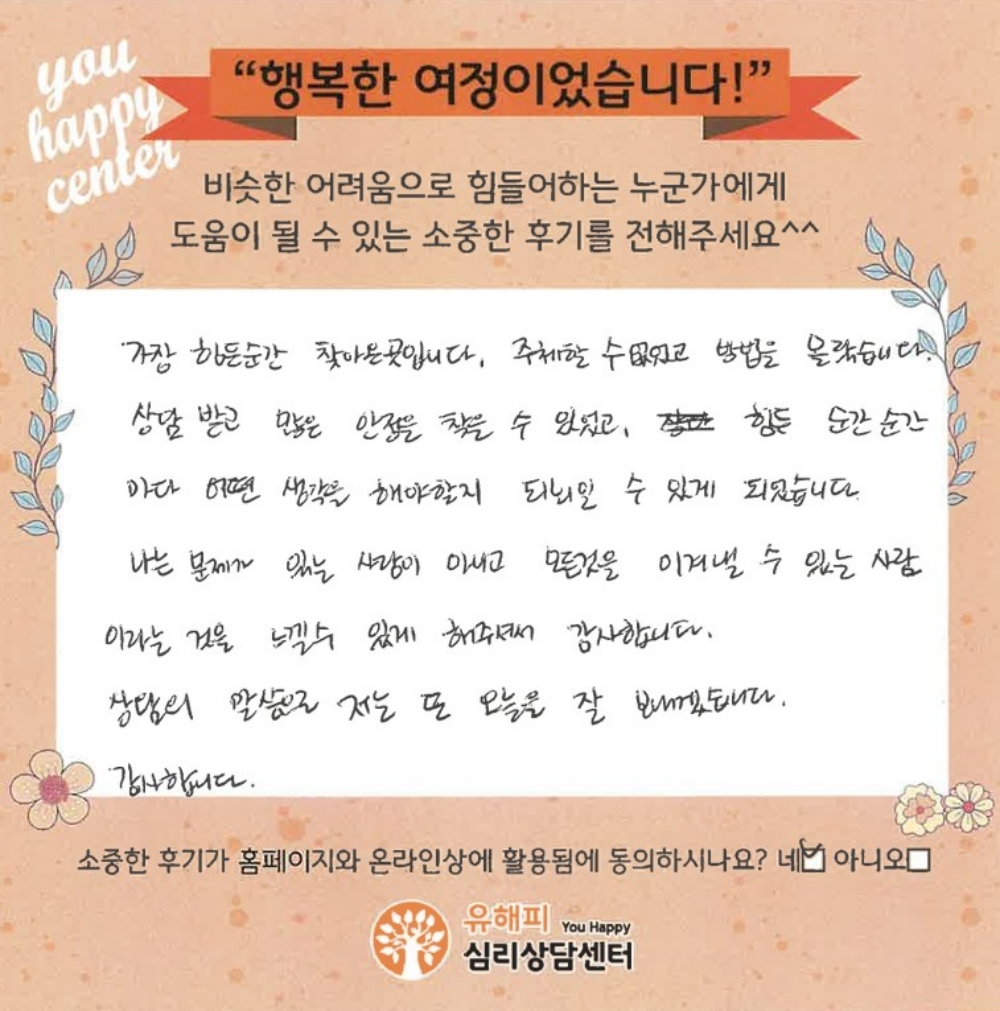 you
happy
center
“행복한 여정이었습니다!”
비슷한 어려움으로 힘들어하는 누군가에게
도움이 될 수 있는 소중한 후기를 전해주세요^^
가장 힘든순간 찾아온곳입니다. 주체할 수 없었고 방법을 몰랐습니다.
상담 받고 많은 안정을 찾을 수 있었고, 힘든 순간순간
마다 어떤 생각을 해야할지 되뇌일 수 있게 되었습니다.
나는 문제가 있는 사람이 아니고 모든것을 이겨낼 수 있는 사람
이라는 것을 느낄수 있게 해주셔서 감사합니다.
상담의 말씀으로 저는 또 오늘을 잘 보내겠습니다.
감사합니다.
소중한 후기가 홈페이지와 온라인상에 활용됨에 동의하시나요? 네☑ 아니오☐
유해피 You Happy
심리상담센터